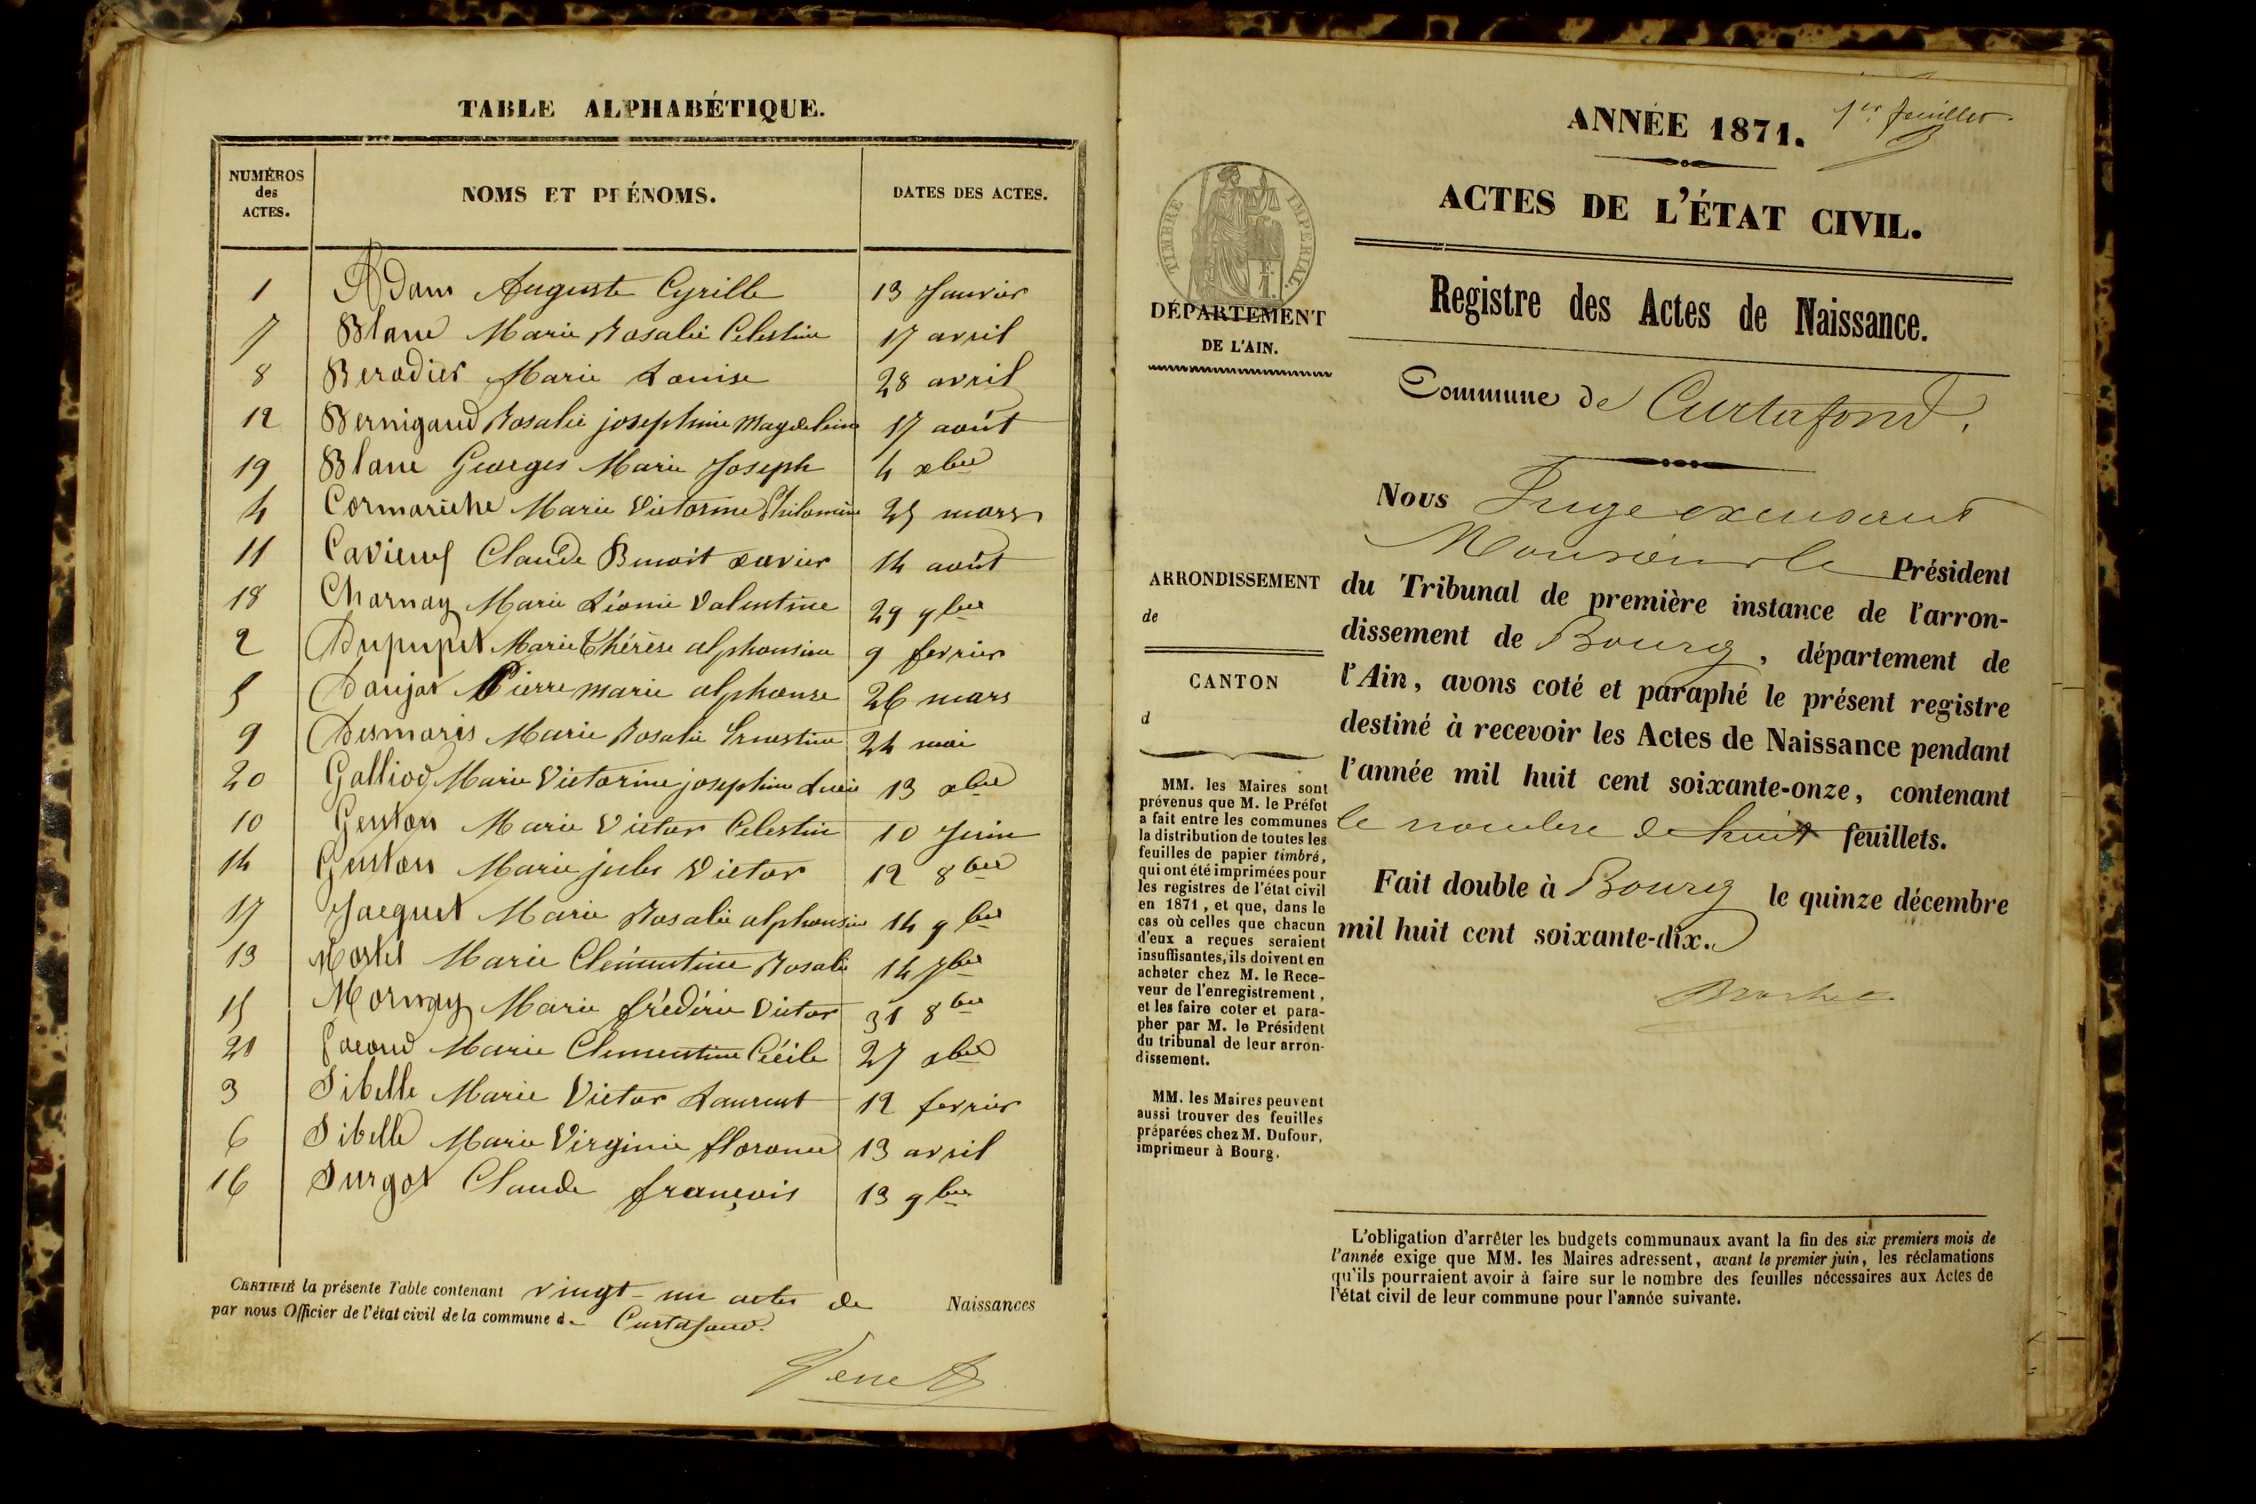 TABLE ALPHABÉTIQUE.
NUMÉROS des ACTES. NOMS ET PRÉNOMS. DATES DES ACTES.
1 Adam Auguste Cyrille 13 Janvier
7 Blanc Marie Rosalie Celestine 17 avril
8 Berodier Marie Louise 28 avril
12 Bernigaud Rosalie josephine Magdeleine 17 août
19 Blanc Georges Marie Joseph 4 xbre
4 Cormarèche Marie Victorine Philomène 25 mars
11 Claude Benoit xavier 14 août
18 Charnay Marie Léonie Valentine 29 9bre
2 Dupupet Marie Thérèse alphonsine 9 fevrier
5 Danjat Pierre marie alphonse 26 mars
9 Desmaris Marie Rosalie Ernestine 24 mai
20 Galliod Marie Victorine josephine Lucie 13 xbre
10 Genton Marie Victor Celestin 10 Juin
14 Genton Marie jules Victor 12 8bre
17 Jacquet Marie Rosalie alphonsine 14 9bre
13 Martel Marie Clémentine Rosalie 14 7bre
15 Mornay Marie frédéric Victor 31 8bre
21 Marie Clementine Cécile 27 xbre
3 Sibelle Marie Victor Laurent 12 fevrier
6 Sibelle Marie Virginie florence 13 avril
16 Surgot Claude françois 13 9bre
CERTIFIÉ la présente Table contenant vingt-un actes de Naissances
par nous Officier de l'état civil de la commune de Curtafond.
1er feuillet.
ANNÉE 1871.
ACTES DE L'ÉTAT CIVIL.
TIMBRE IMPERIAL.
Registre des Actes de Naissance.
DÉPARTEMENT
DE L'AIN.
Commune de Curtafond.
Nous Juge excusant
Monsieur le Président
du Tribunal de première instance de l'arron-
dissement de Bourg, département de
l'Ain, avons coté et paraphé le présent registre
destiné à recevoir les Actes de Naissance pendant
l'année mil huit cent soixante-onze, contenant
le nombre de huit feuillets.
Fait double à Bourg le quinze décembre
mil huit cent soixante-dix.
ARRONDISSEMENT
de
CANTON
d
MM. les Maires sont
prévenus que M. le Préfet
a fait entre les communes
la distribution de toutes les
feuilles de papier timbré,
qui ont été imprimées pour
les registres de l'état civil
en 1871, et que, dans le
cas où celles que chacun
d'eux a reçues seraient
insuffisantes, ils doivent en
acheter chez M. le Rece-
veur de l'enregistrement,
et les faire coter et para-
pher par M. le Président
du tribunal de leur arron-
dissement.
MM. les Maires peuvent
aussi trouver des feuilles
préparées chez M. Dufour,
imprimeur à Bourg.
L'obligation d'arrêter les budgets communaux avant la fin des six premiers mois de
l'année exige que MM. les Maires adressent, avant le premier juin, les réclamations
qu'ils pourraient avoir à faire sur le nombre des feuilles nécessaires aux Actes de
l'état civil de leur commune pour l'année suivante.